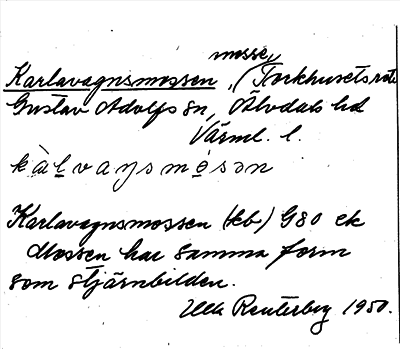 mosse,
Karlavagnsmossen, (Torkhusets rote
Gustav Adolfs sn, Älvdals hd
Värml. l.
Karlavagnsmossen (kb.) G80 ek
Mossen har samma form
som stjärnbilden.
Ulla Reuterberg 1950.